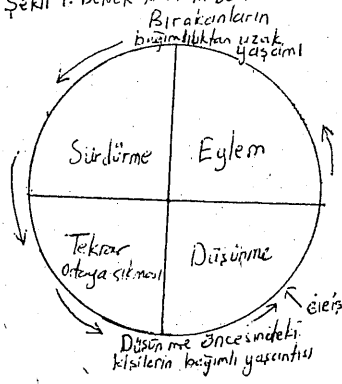 Şekil 1.
Bırakanların
bağımlılıktan uzak
yaşamı
Sürdürme
Eylem
Tekrar
ortaya çıkması
Düşünme
Giriş
Düşünme öncesindeki
kişilerin bağımlı yaşantısı